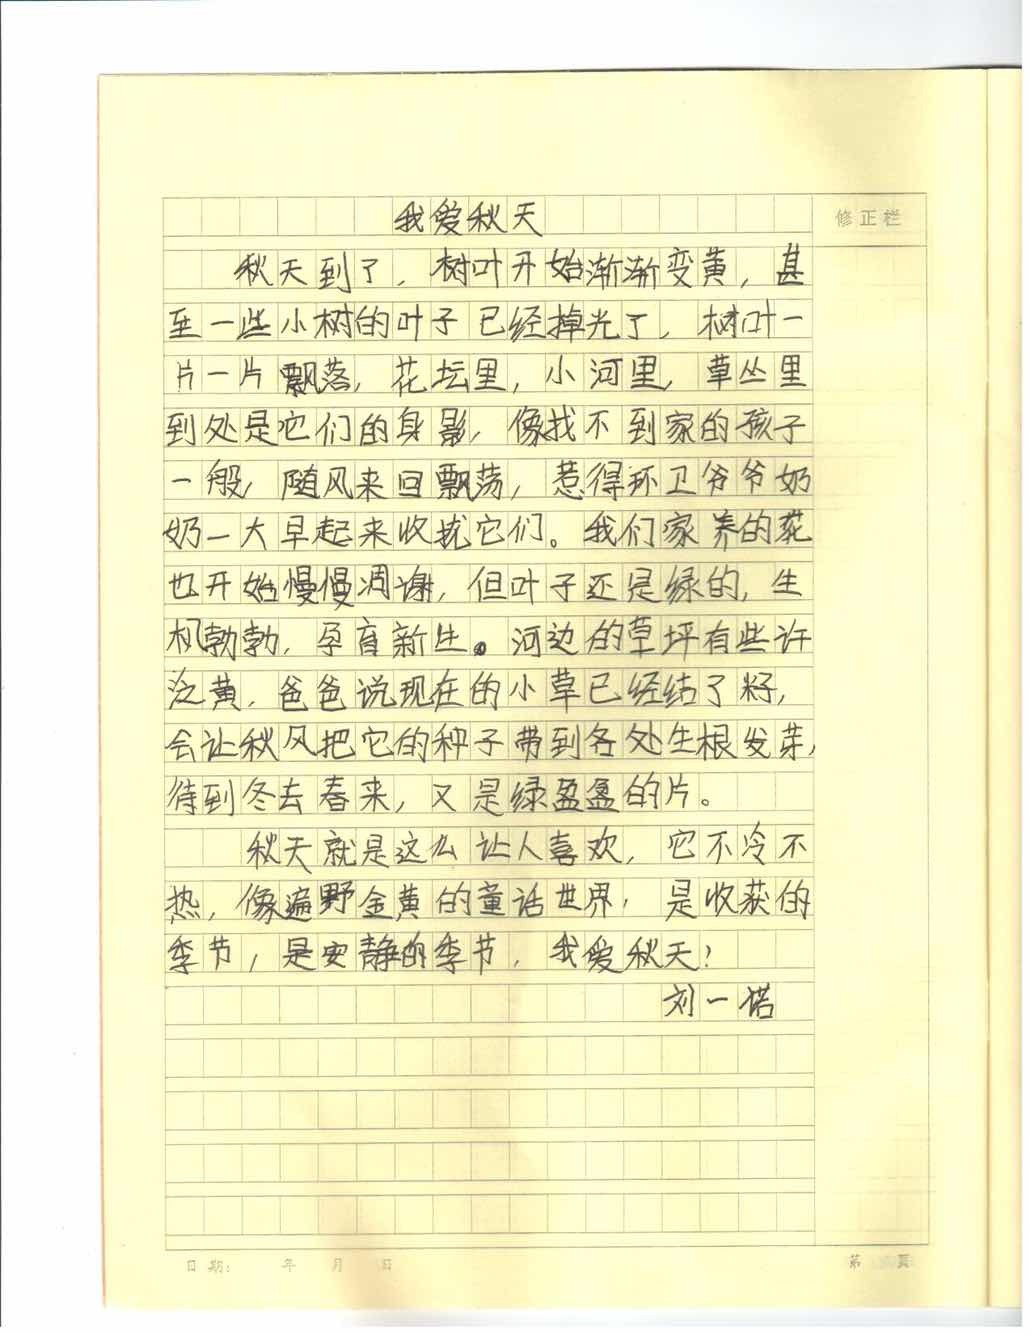 我爱秋天
修正栏
秋天到了，树叶开始渐渐变黄，甚
至一些小树的叶子已经掉光了，树叶一
片一片飘落，花坛里，小河里，草丛里
到处是它们的身影，像找不到家的孩子
一般，随风来回飘荡，惹得环卫爷爷奶
奶一大早起来收扰它们。我们家养的花
也开始慢慢凋谢，但叶子还是绿的，生
机勃勃，孕育新生。河边的草坪有些许
泛黄，爸爸说现在的小草已经结了籽，
会让秋风把它的种子带到各处生根发芽，
待到冬去春来，又是绿盈盈的片。
秋天就是这么让人喜欢，它不冷不
热，像遍野金黄的童话世界，是收获的
季节，是安静的季节，我爱秋天！
刘一诺
日期： 年 月 日
第 页